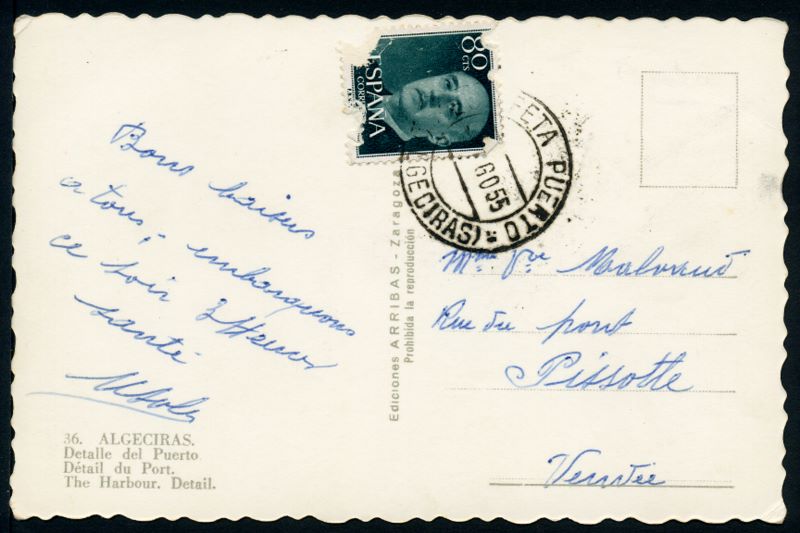 Bons baisers
a tous, embarquons
ce soir 2 Heures
santé
36. ALGECIRAS.
Detalle del Puerto
Détail du Port.
The Harbour. Detail.
Ediciones ARRIBAS - Zaragoza
Prohibida la reproducción
80
CTS
ESPAÑA
CORREOS
FETA PUERTO =
GECIRAS)
GO 55
Mme Vve
Rue du pont
Pissotte
Vendée